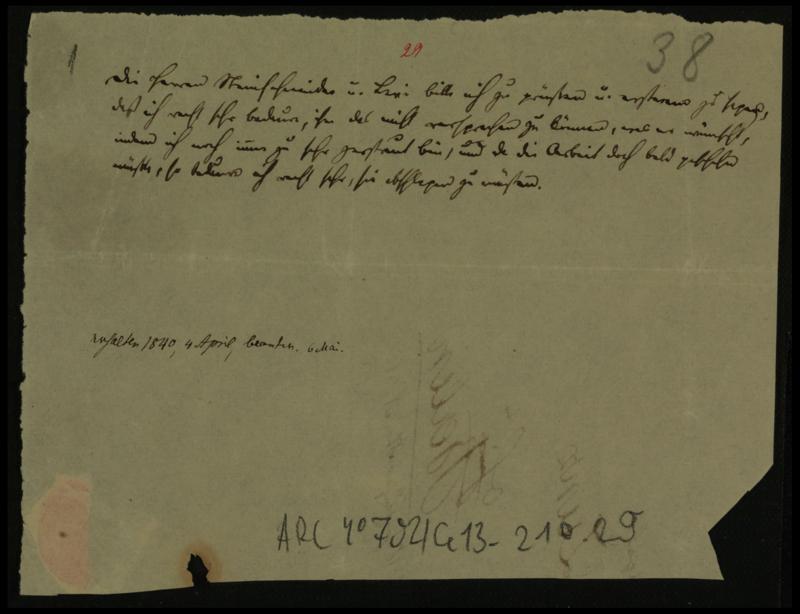 29
38
Die Herren Steinschneider u. Levi bitte ich zu grüßen u. ersterem zu sagen,
daß ich recht sehr bedaure, ihm das nicht versprechen zu können, was er wünscht,
indem ich noch immer zu sehr zerstreut bin, und da die Arbeit doch bald geschehen
müßte, so bedaure ich recht sehr, sie abschlagen zu müssen.
erhalten 1840, 4 April, beantw. 6 Mai.
ARC 4° 792/G13-210.29